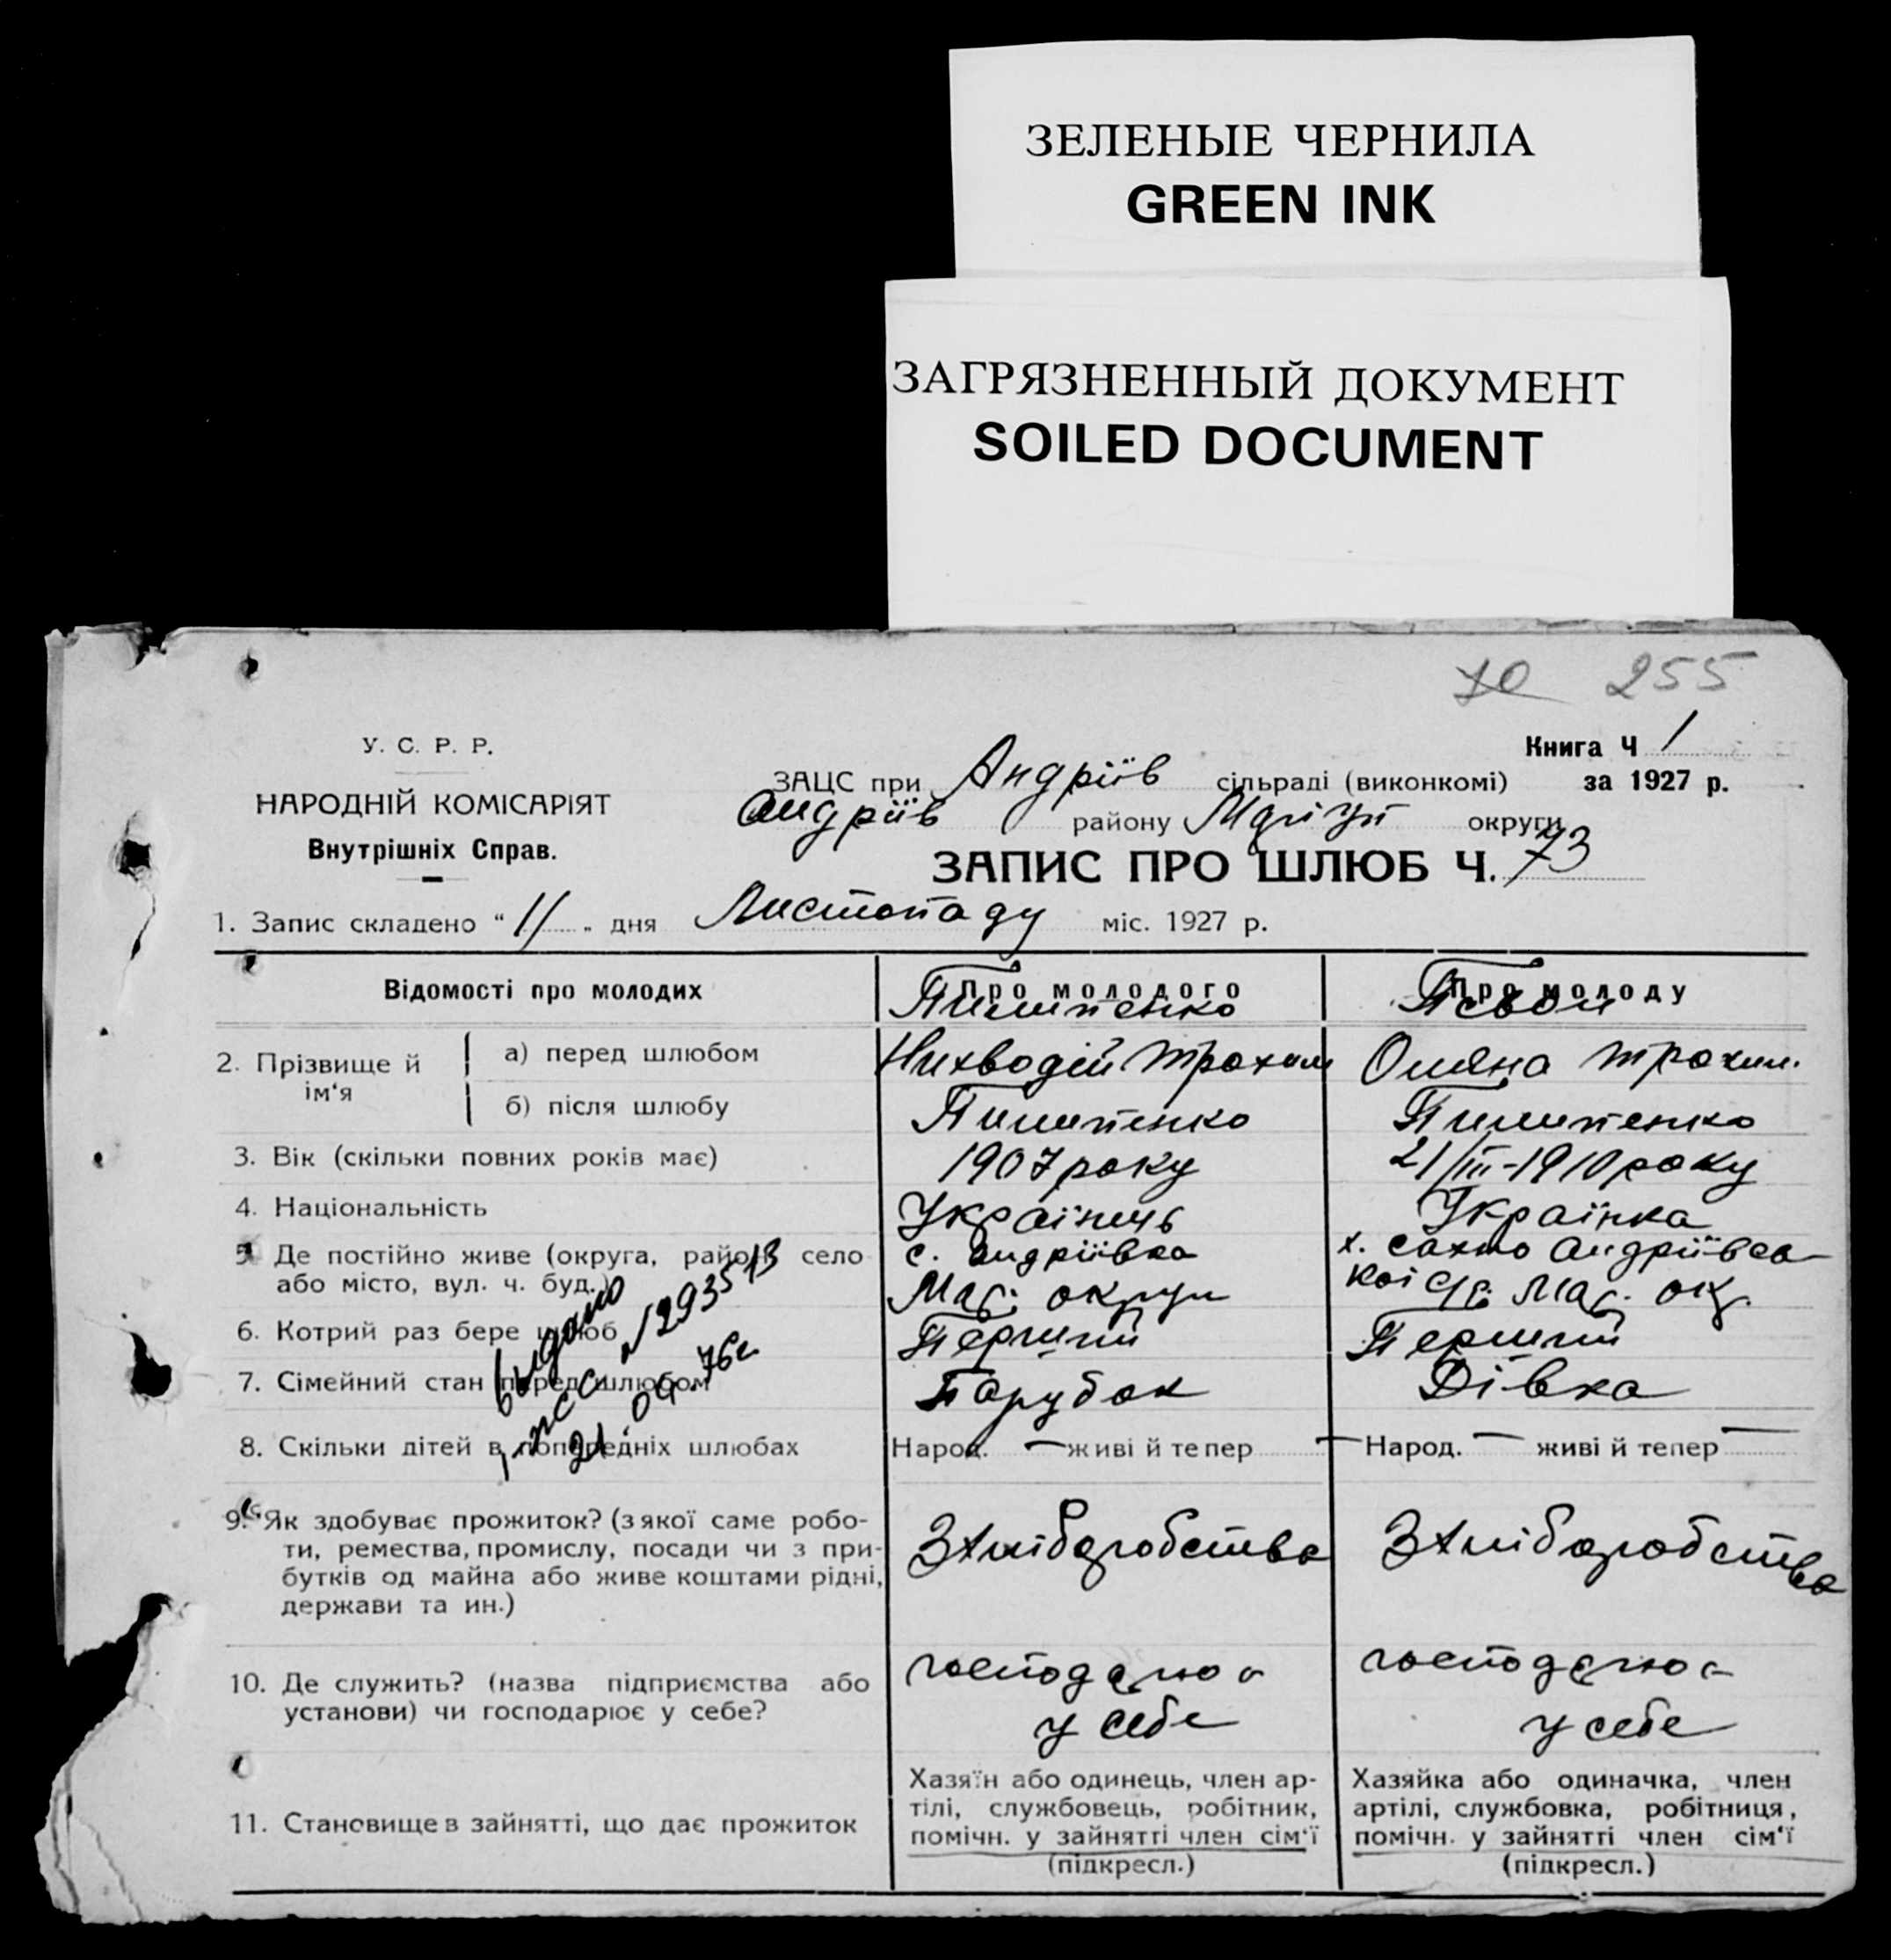 ЗЕЛЕНЫЕ ЧЕРНИЛА
GREEN INK
ЗАГРЯЗНЕННЫЙ ДОКУМЕНТ
SOILED DOCUMENT
70 255
У. С. Р. Р.
НАРОДНІЙ КОМІСАРІЯТ
Внутрішніх Справ.
Книга Ч 1
за 1927 р.
ЗАЦС при Андріїв сільраді (виконкомі)
Андріїв району Маріуп округи
ЗАПИС ПРО ШЛЮБ Ч. 73
1. Запис складено "11" дня Листопаду міс. 1927 р.
Відомості про молодих
Про молодого
Про молоду
2. Прізвище й ім'я
а) перед шлюбом
Пилипенко
Трохим
Трохим.
б) після шлюбу
Пилипенко
Пилипенко
3. Вік (скільки повних років має)
1907 року
21/III-1910 року
4. Національність
Українець
Українка
5. Де постійно живе (округа, район, село
або місто, вул. ч. буд.)
с. Андріївка
Мар. округи
х. Сахно Андріївсь-
кої с/р. Мар. окр.
6. Котрий раз бере шлюб
Перший
Перший
7. Сімейний стан перед шлюбом
Парубок
Дівка
8. Скільки дітей в попередніх шлюбах
Народ. — живі й тепер —
Народ. — живі й тепер —
выдано
N 293573
21.04.76г.
9. Як здобуває прожиток? (з якої саме робо-
ти, ремества, промислу, посади чи з при-
бутків од майна або живе коштами рідні,
держави та ин.)
З хліборобства
З хліборобства
10. Де служить? (назва підприємства або
установи) чи господарює у себе?
господарює
у себе
господарює
у себе
11. Становище в зайнятті, що дає прожиток
Хазяїн або одинець, член ар-
тілі, службовець, робітник,
помічн. у зайнятті член сім'ї
(підкресл.)
Хазяйка або одиначка, член
артілі, службовка, робітниця,
помічн. у зайнятті член сім'ї
(підкресл.)